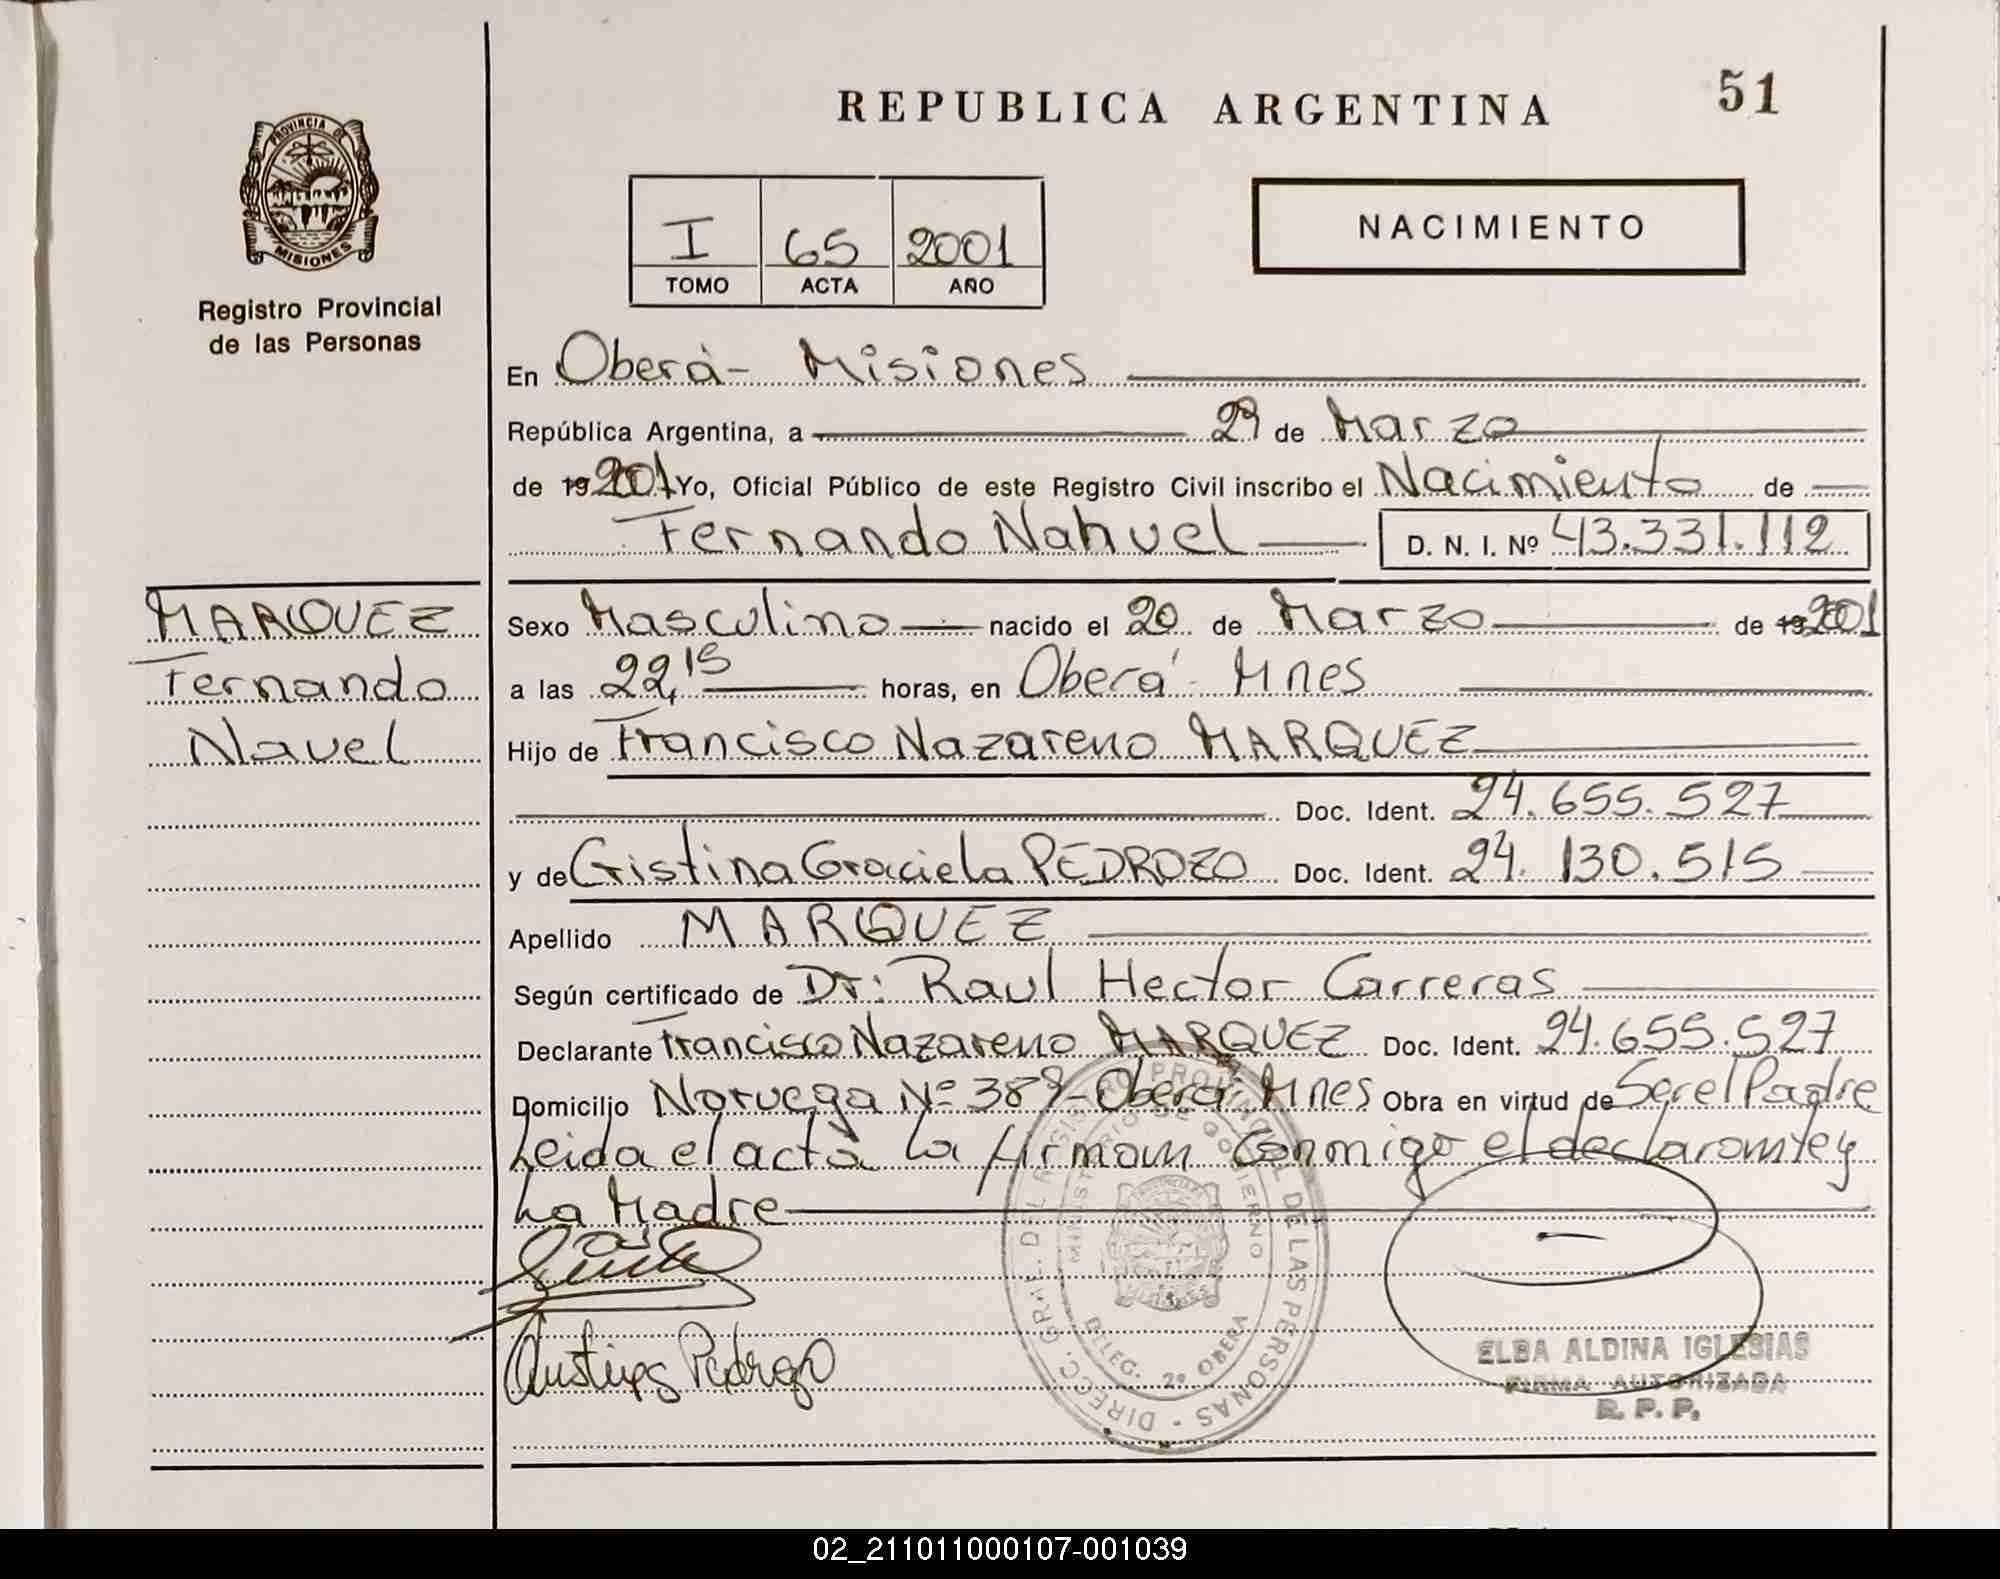 REPUBLICA ARGENTINA
51
PROVINCIA DE
MISIONES
Registro Provincial
de las Personas
I 65 2001
TOMO ACTA AÑO
NACIMIENTO
En Oberá - Misiones
República Argentina, a 29 de Marzo
de 19 2001 Yo, Oficial Público de este Registro Civil inscribo el Nacimiento de
Fernando Nahuel D. N. I. Nº 43.331.112
MARQUEZ
Fernando
Nauel
Sexo Masculino nacido el 20 de Marzo de 19 2001
a las 22,15 horas, en Oberá - Mnes
Hijo de Francisco Nazareno MARQUEZ
Doc. Ident. 24.655.527
y de Cristina Graciela PEDROZO Doc. Ident. 24.130.515
Apellido MARQUEZ
Según certificado de Dr: Raul Hector Carreras
Declarante Francisco Nazareno MARQUEZ Doc. Ident. 24.655.527
Domicilio Noruega Nº 389 - Oberá, Mnes Obra en virtud de Ser el Padre
Leida el acta la firman conmigo el declarante y
La Madre
DIREC. GRAL. DEL REGISTRO PROVINCIAL DE LAS PERSONAS
MINISTERIO DE GOBIERNO
DELEG. 2º OBERA
Pedrozo
ELBA ALDINA IGLESIAS
FIRMA AUTORIZADA
R. P. P.
02_211011000107-001039